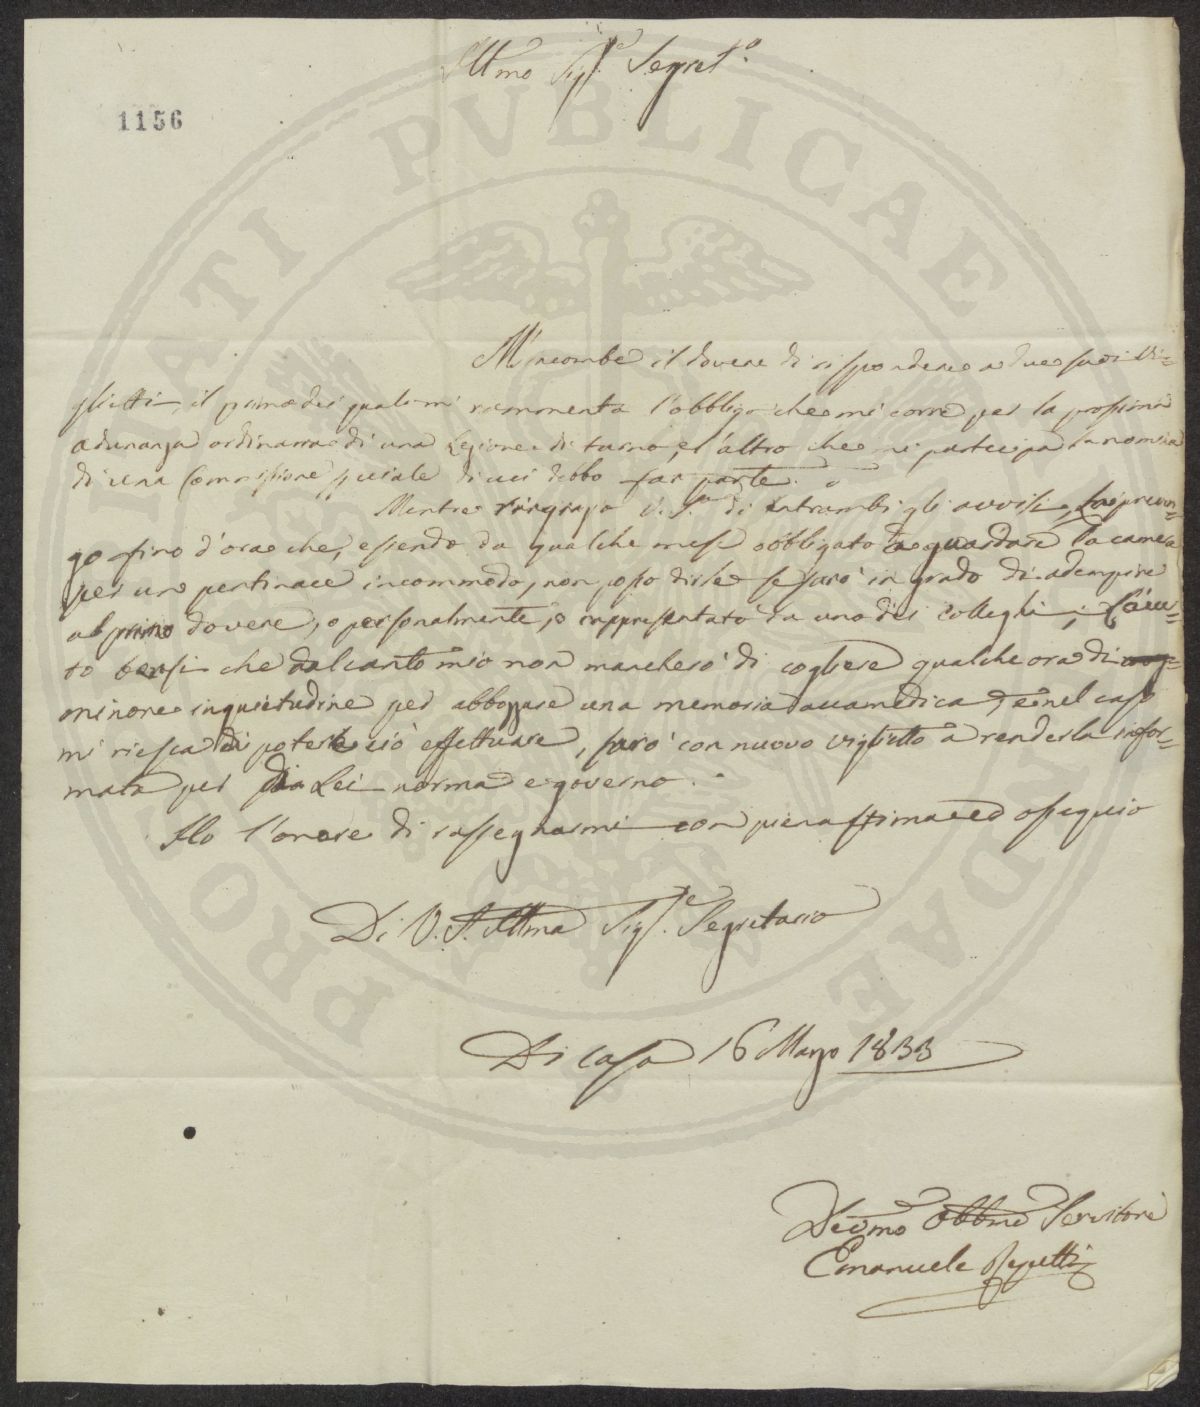 Illmo Sig.e Segret.o
1156
M'incombe il dovere di rispondere a due suoi vi=
glietti, il primo dei quali mi rammenta l'obbligo che mi corre per la prossima
adunanza ordinaria di una Lezione di turno, e l'altro che mi partecipa la nomina
di una Commissione speciale di cui debbo far parte.
Mentre ringrazio V.S. di entrambi gli avvisi, la preven=
go fino d'ora che, essendo da qualche mese obbligato a guardare la camera
per un pertinace incommodo, non posso dirle se sarò in grado di adempire
al primo dovere, o personalmente, o rappresentato da uno dei colleghi;
to bensì che dal canto mio non mancherò di cogliere qualche ora di
minore inquietudine per abbozzare una memoria accademica, e nel caso
mi riesca di poterlo ciò effettuare, sarò con nuovo viglietto a renderla infor=
mata per di Lei norma e governo.
Ho l'onore di rassegnarmi con piena stima ed ossequio
Di V. S. Illma Sig.e Segretario
Di Casa 16 Marzo 1833
Devmo Obbmo Servitore
Emanuele Repetti
PROSPERITATI PVBLICAE AVGENDAE